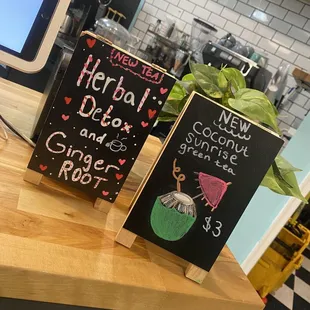 new TEA
Herbal
Detox
and
Ginger
ROOT
NEW
Coconut
Sunrise
green tea
$3